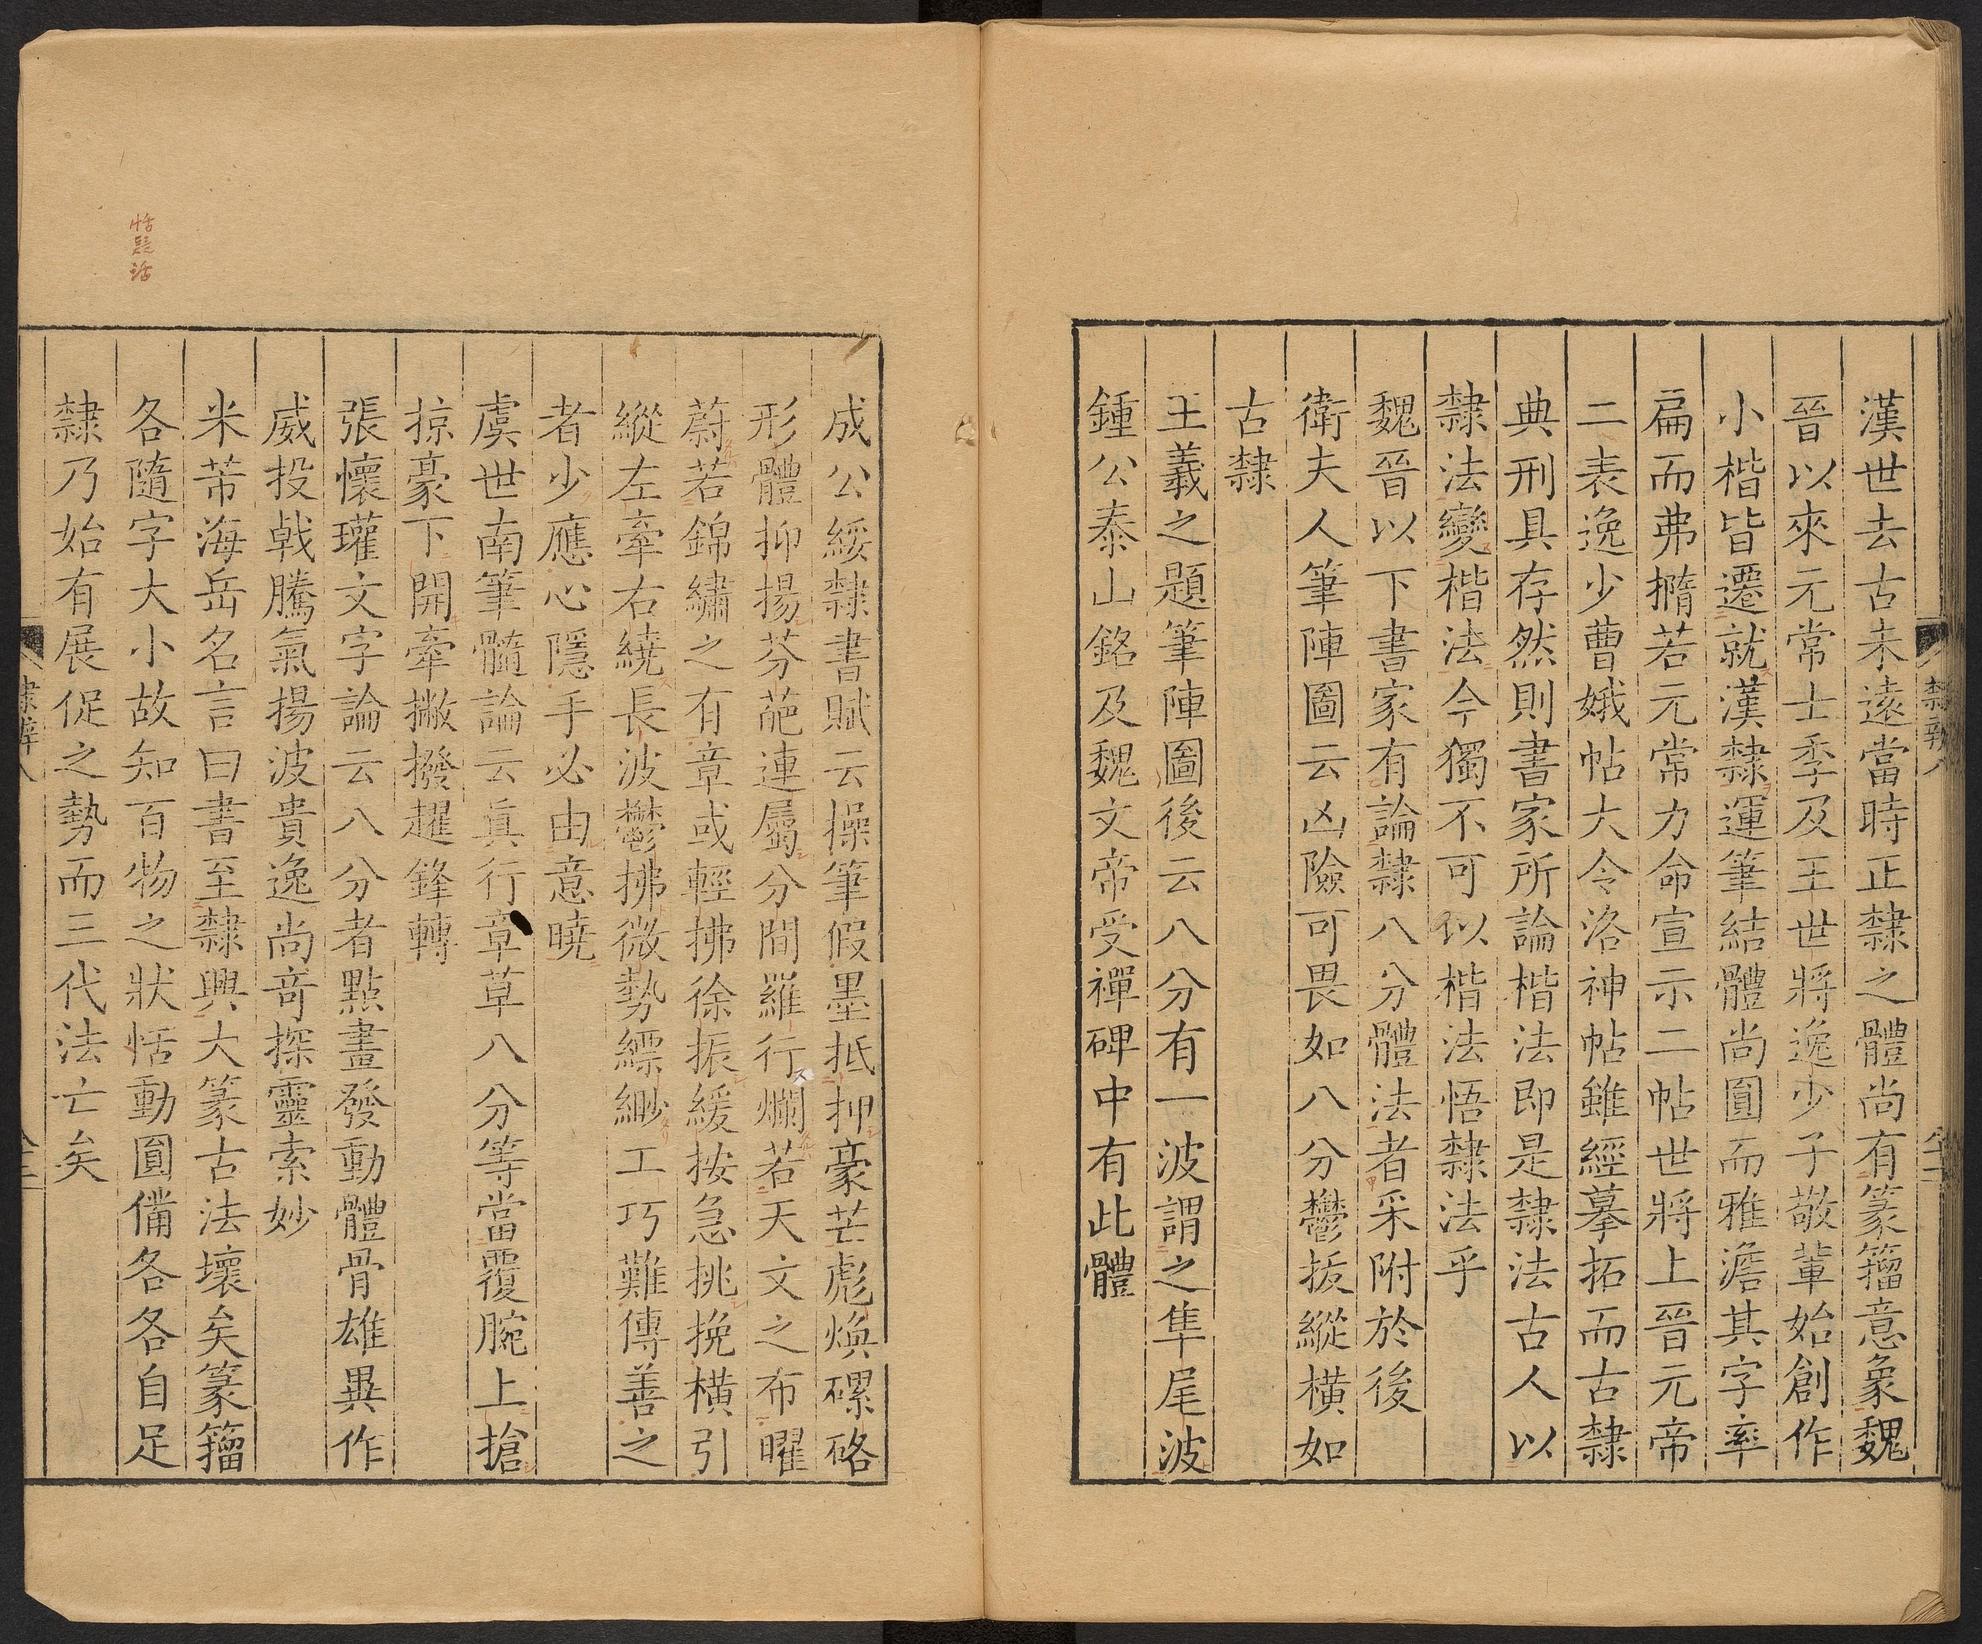 漢世去古未遠當時正隸之體尚有篆籀意象魏
晉以來元常士季及王世將逸少子敬輩始創作
小楷皆遷就漢隸運筆結體尚圓而雅澹其字率
扁而弗橢若元常力命宣示二帖世將上晉元帝
二表逸少曹娥帖大令洛神帖雖經摹拓而古隸
典刑具存然則書家所論楷法即是隸法古人以
隸法變楷法今獨不可以楷法悟隸法乎
魏晉以下書家有論隸八分體法者采附於後
衛夫人筆陣圖云凶險可畏如八分鬱拔縱橫如
古隸
王羲之題筆陣圖後云八分有一波謂之隼尾波
鍾公泰山銘及魏文帝受禪碑中有此體
成公綏隸書賦云操筆假墨抵押豪芒彪煥磥硌
形體抑揚芬葩連屬分間羅行爛若天文之布曜
蔚若錦繡之有章或輕拂徐振緩按急挑挽橫引
縱左牽右繞長波鬱拂微勢縹緲工巧難傳善之
者少應心隱手必由意曉
虞世南筆髓論云真行章草八分等當覆腕上搶
掠豪下開牽撇撥趯鋒轉
張懷瓘文字論云八分者點畫發動體骨雄異作
威投戟騰氣揚波貴逸尚奇探靈索妙
米芾海岳名言曰書至隸興大篆古法壞矣篆籀
各隨字大小故知百物之狀恬動圓備各各自足
隸乃始有展促之勢而三代法亡矣
隸辨八
恬疑活